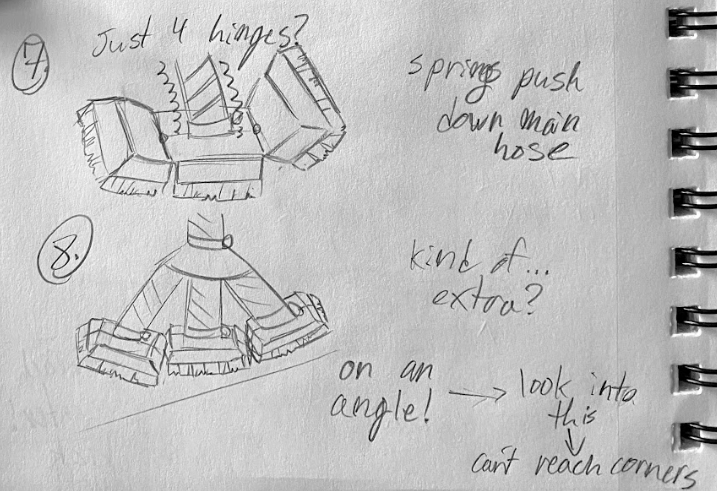 7.
Just 4 hinges?
springs push
down main
hose
8.
kind of...
extra?
on an
angle!
look into
this
can't reach corners